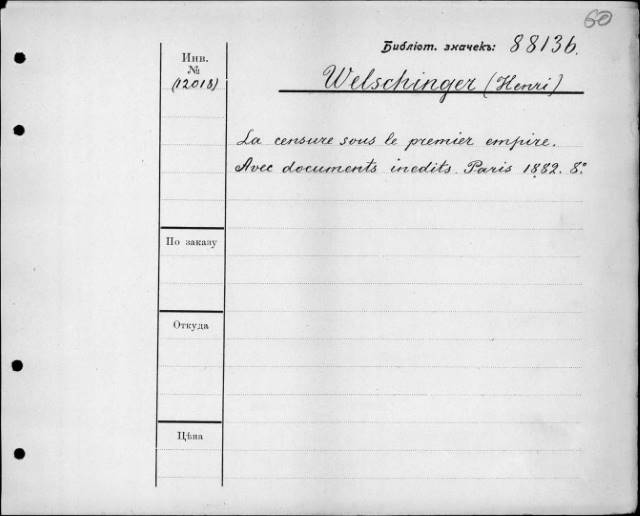 60
Библіот. значекъ: 88136.
Инв.
№
(12018)
Welschinger (Henri)
La censure sous le premier empire.
Avec documents inedits. Paris 1882. 8°
По заказу
Откуда
Цѣна